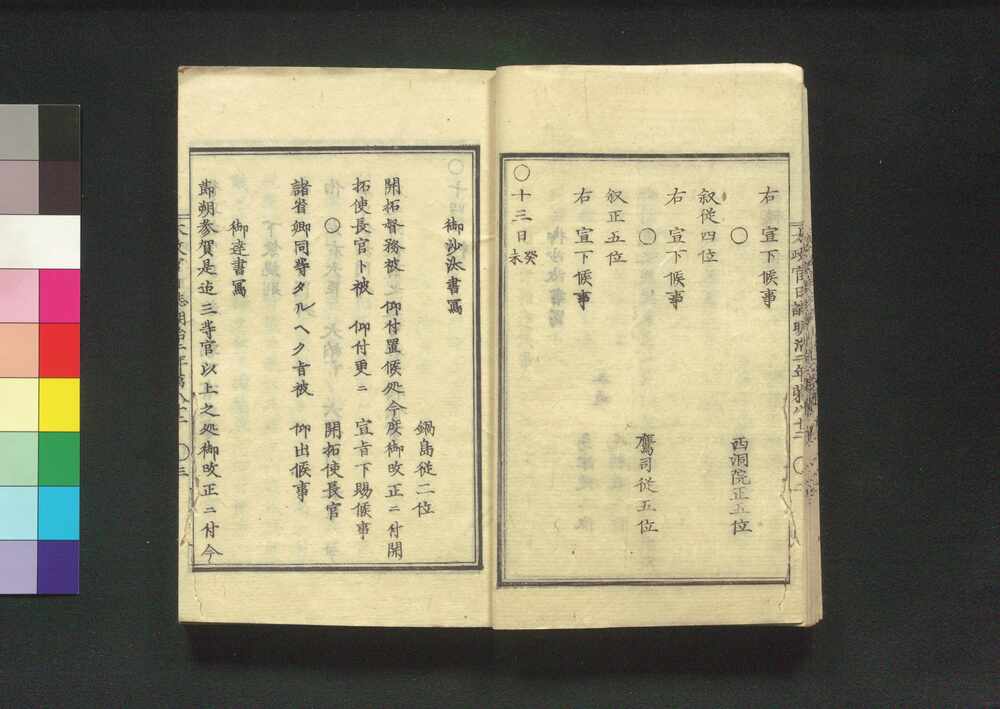 右宣下候事
○
西洞院正五位
叙従四位
右宣下候事
○
鷹司従五位
叙正五位
右宣下候事
○十三日癸未
御沙汰書寫
鍋島従二位
開拓督務被仰付置候処今度御改正ニ付開
拓使長官ト被 仰付更ニ 宣旨下賜候事
○ 開拓使長官
諸省卿同等タルヘク旨被 仰出候事
御達書寫
節朔参賀是迠三等官以上之処御改正ニ付今